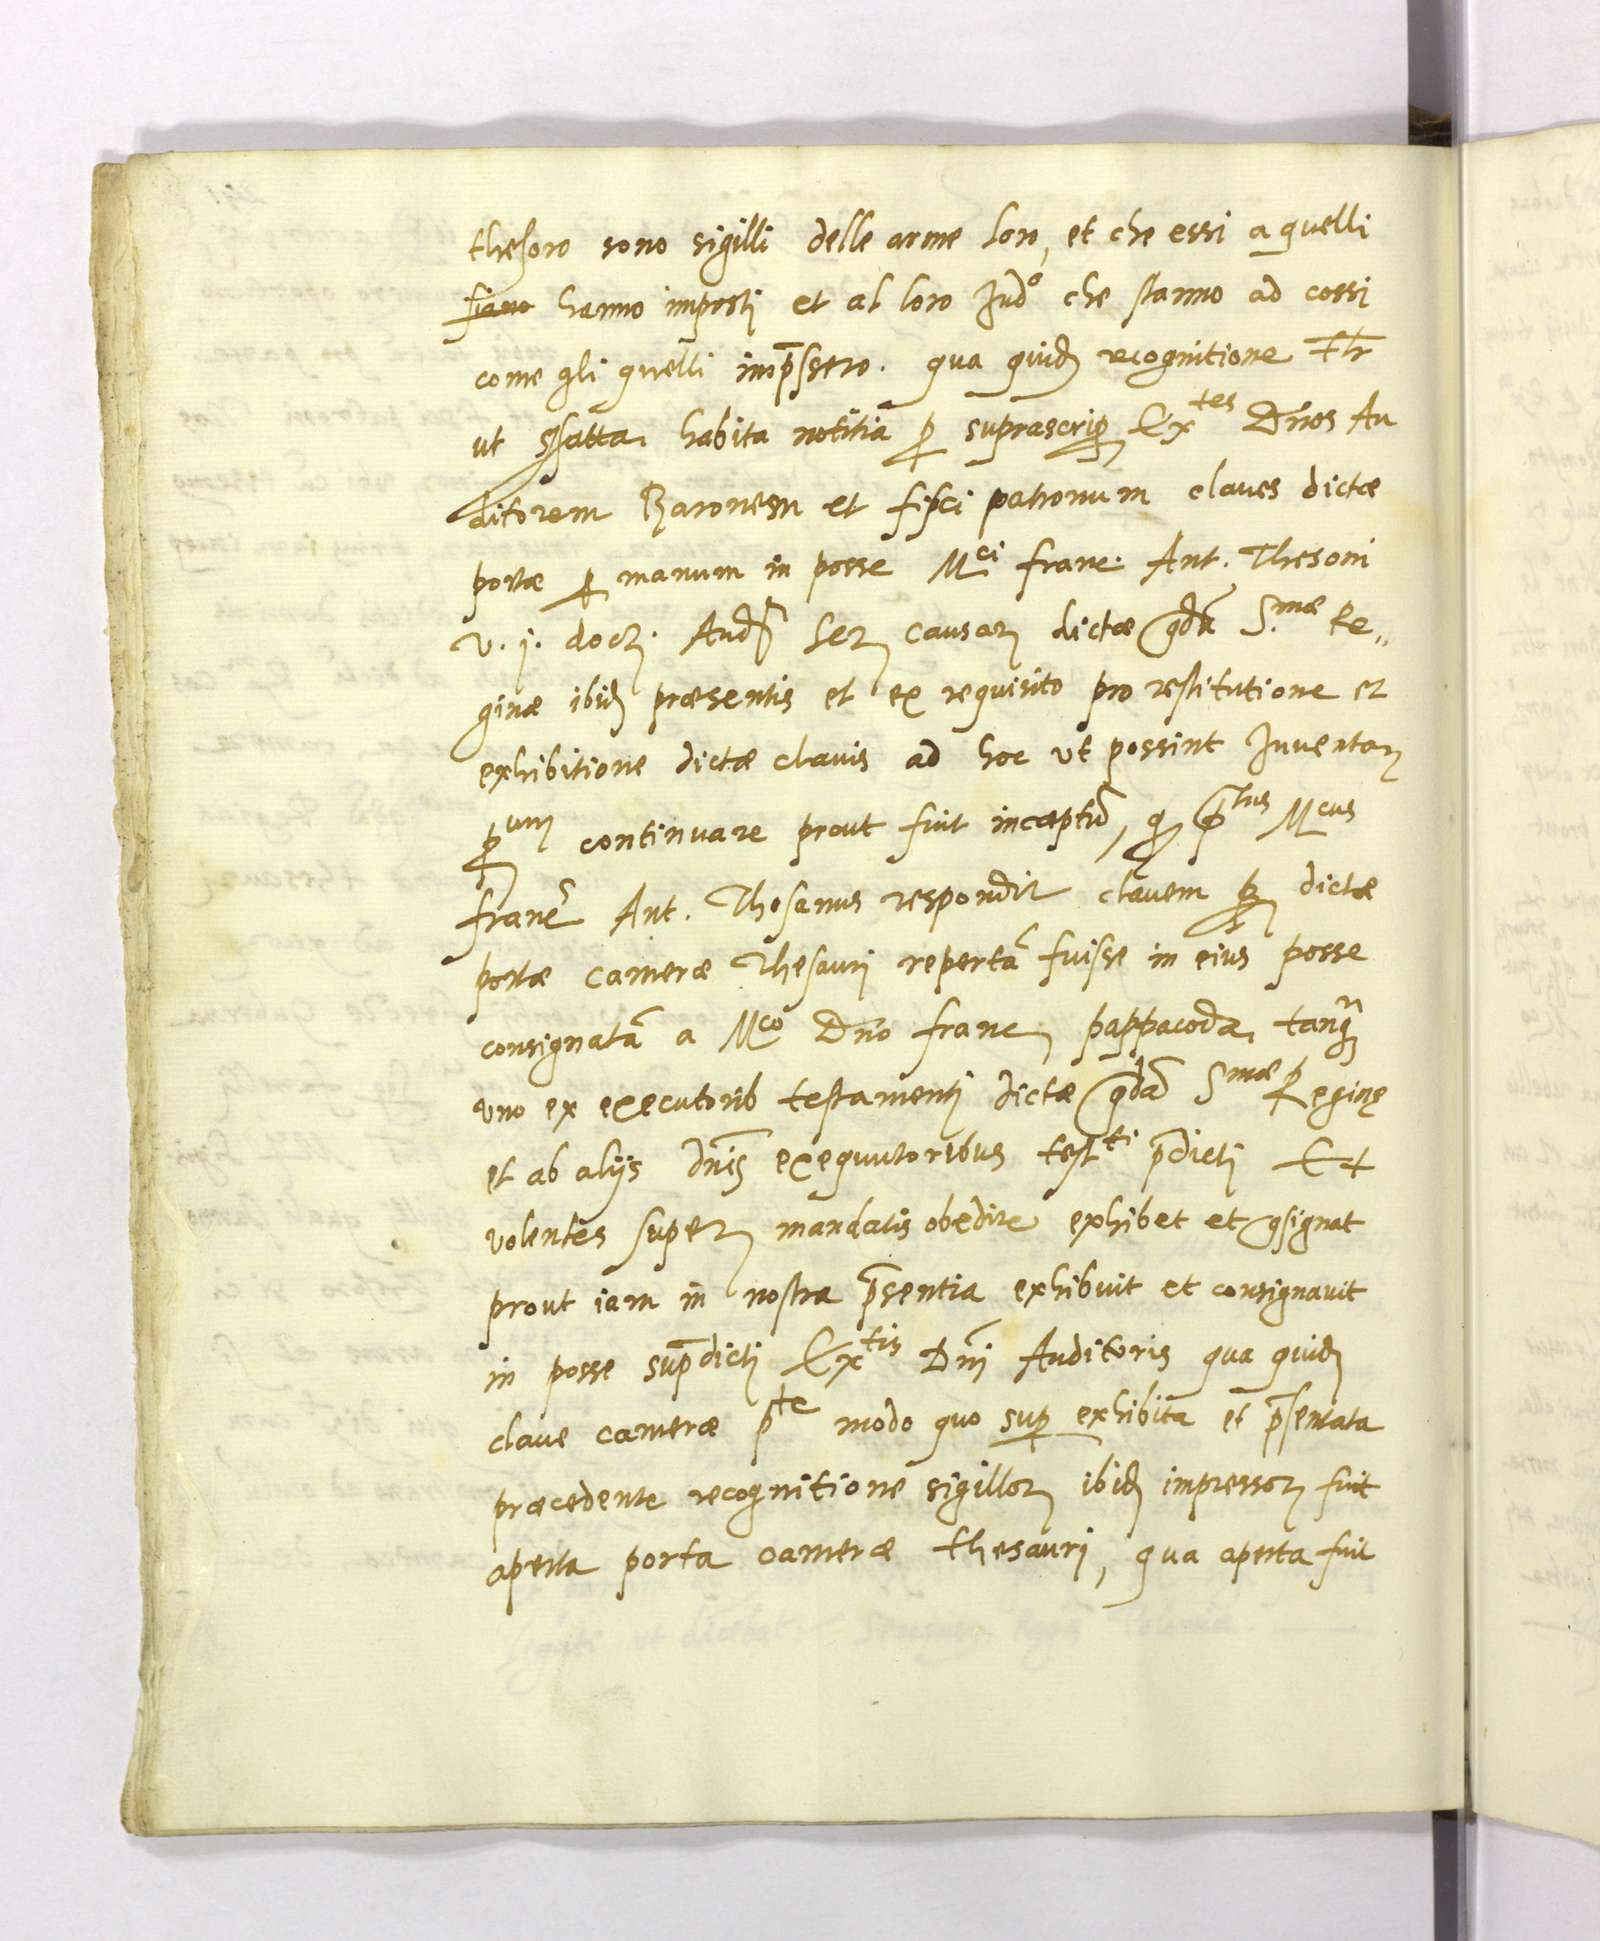 thesoro sono sigilli delle arme loro, et che essi a quelli
hanno imposti et al loro Jud° che stanno ad cossi
come gli quelli imp̄ssero. qua quid recognitione
ut habita notitiā ꝑ suprascrip Ex^tes Dños Au
ditorem Baronem et fisci patronum claves dictæ
portæ ꝑ manum in posse M^ci franc. Ant. Thesoni
v. j. doct. Aud^r causar dictæ qd̄ā S.^mæ Re„
ginæ ibid præsentis et ex requisito pro restitutione et
exhibitione dictæ clavis ad hoc ut possint Inventar
p^um continuare prout fuit inceptū, q p̄^tus M^cus
franc̄ Ant. Thesanus respondit clavem dictæ
portæ cameræ Thesauri repertā fuisse in eius posse
consignatā a M^co Dño franc pappacoda tanq̄
uno ex executorib testamenti dictæ qdā S^mæ Reginę
et ab alijs dñis exequutoribus test^ti p̄dicti Et
volentes super mandatis obedire exhibet et 9signat
prout iam in nostra p̄sentia exhibuit et consignavit
in posse sup̄dicti Ex^tis Dñi Auditoris qua quid
clave cameræ p^te modo quo sup exhibita et p̄sentata
præcedente recognitione sigillor ibid impressor fuit
aperta porta cameræ thesauri, qua aperta fuit